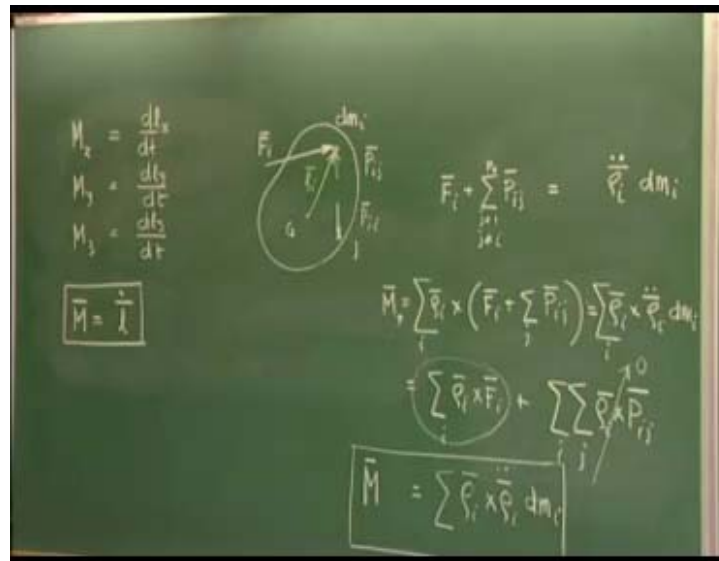 M_x = dl_x/dt
M_y = dl_y/dt
M_z = dl_z/dt
M̄ = l̄̇
dm_i
F̄_i
P̄_ij
ρ̄_i
G
P̄_ji
j
F̄_i + ∑_{j=1, j≠i}^{n} P̄_ij = ρ̄̈_i dm_i
M̄ = ∑_i ρ̄_i × (F̄_i + ∑_j P̄_ij) = ∑_i ρ̄_i × ρ̄̈_i dm_i
= ∑_i ρ̄_i × F̄_i + ∑_i ∑_j ρ̄_i × P̄_ij → 0
M̄ = ∑ ρ̄_i × ρ̄̈_i dm_i